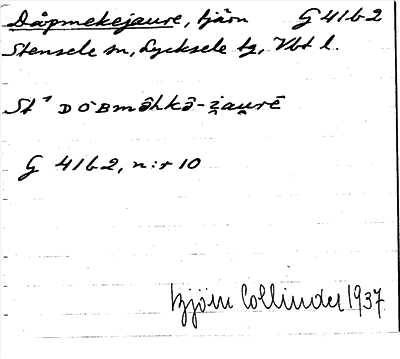 Dåpmekejaure, tjärn G 41 b 2
Stensele sn, Lycksele tg, Vbt l.
St¹ DÒBmāhkā-jau̯rē
G 41 b 2, n:r 10
Björn Collinder 1937